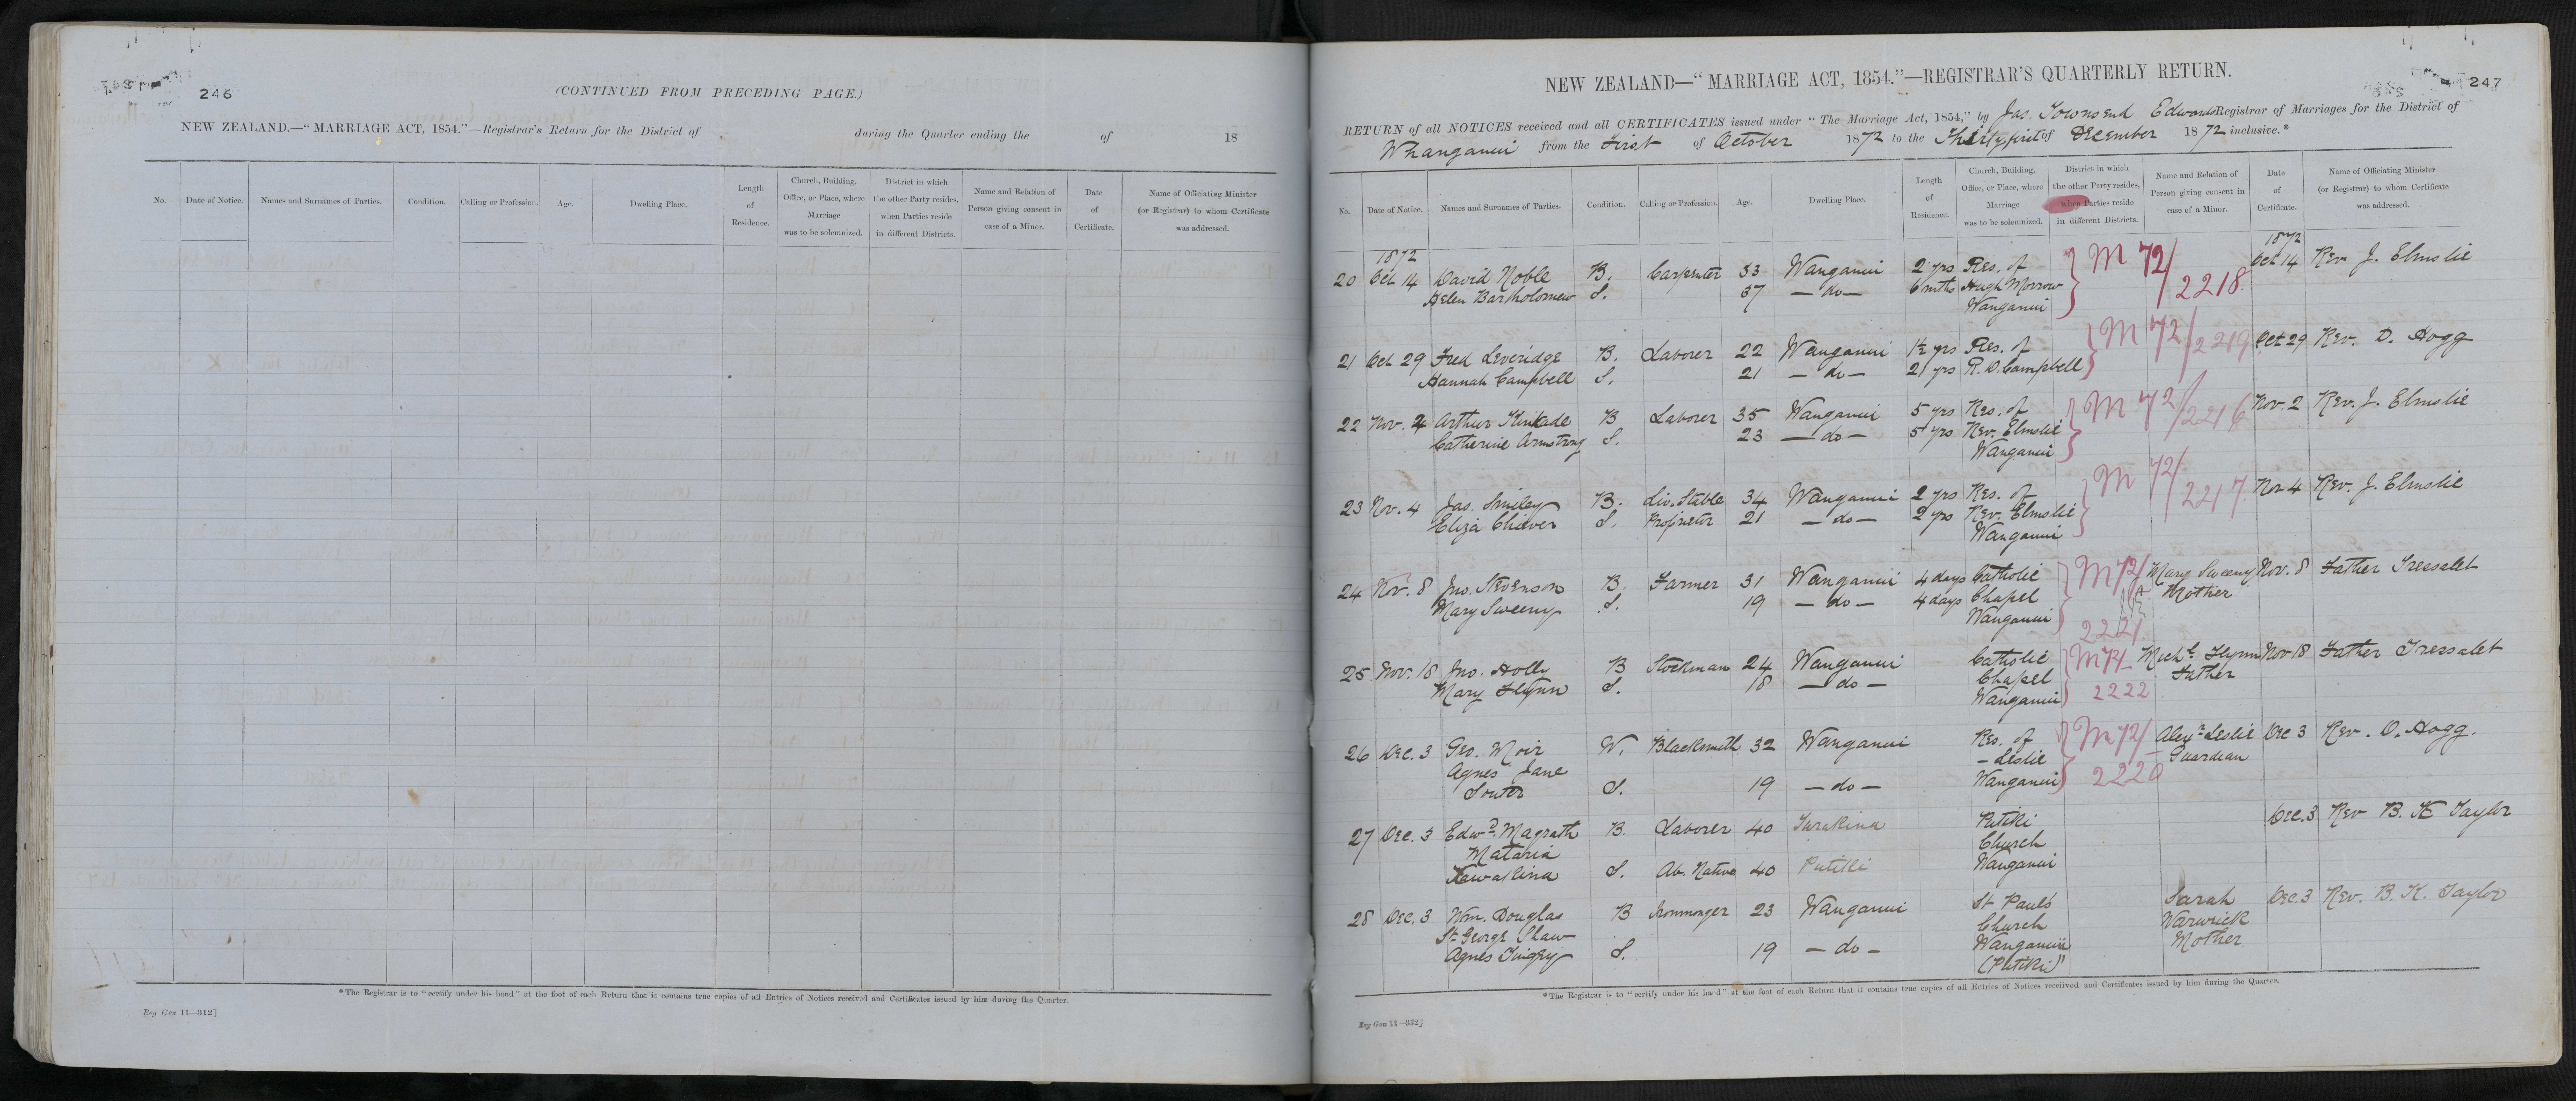 246
(CONTINUED FROM PRECEDING PAGE.)
NEW ZEALAND.—"MARRIAGE ACT, 1854."—Registrar's Return for the District of during the Quarter ending the of 18
No. Date of Notice. Names and Surnames of Parties. Condition. Calling or Profession. Age. Dwelling Place. Length of Residence. Church, Building, Office, or Place, where Marriage was to be solemnized. District in which the other Party resides, when Parties reside in different Districts. Name and Relation of Person giving consent in case of a Minor. Date of Certificate. Name of Officiating Minister (or Registrar) to whom Certificate was addressed.
*The Registrar is to "certify under his hand" at the foot of each Return that it contains true copies of all Entries of Notices received and Certificates issued by him during the Quarter.
Reg Gen 11—312]
247
NEW ZEALAND—"MARRIAGE ACT, 1854."—REGISTRAR'S QUARTERLY RETURN.
RETURN of all NOTICES received and all CERTIFICATES issued under "The Marriage Act, 1854," by Jas. Townsend Edwards Registrar of Marriages for the District of
Whanganui from the First of October 1872 to the Thirtyfirst of December 1872 inclusive.*
No. Date of Notice. Names and Surnames of Parties. Condition. Calling or Profession. Age. Dwelling Place. Length of Residence. Church, Building, Office, or Place, where Marriage was to be solemnized. District in which the other Party resides, when Parties reside in different Districts. Name and Relation of Person giving consent in case of a Minor. Date of Certificate. Name of Officiating Minister (or Registrar) to whom Certificate was addressed.
1872 1872
20 Oct 14 David Noble B. Carpenter 33 Wanganui 2 yrs Res. of M 72/ Oct 14 Rev J. Elmslie
Helen Bartholomew S. 37 — do — 6 mths Hugh Morrow 2218
Wanganui
21 Oct 29 Fred Leveridge B. Laborer 22 Wanganui 1½ yrs Res. of M 72/2219 Oct 29 Rev. D. Hogg
Hannah Campbell S. 21 — do — 21 yrs R. D. Campbell
22 Nov. 2 Arthur Kinkade B Laborer 35 Wanganui 5 yrs Res. of M 72/2216 Nov. 2 Rev. J. Elmslie
Catherine Armstrong S. 23 — do — 5 yrs Rev. Elmslie
Wanganui
23 Nov. 4 Jas. Smiley B. Liv. Stable 34 Wanganui 2 yrs Res. of M 72/2217 Nov 4 Rev. J. Elmslie
Eliza Cliever S. Proprietor 21 — do — 2 yrs Rev. Elmslie
Wanganui
24 Nov. 8 Jno. Stevenson B. Farmer 31 Wanganui 4 days Catholic M 72/ Mary Sweeny Nov. 8 Father Tressalet
Mary Sweeny S. 19 — do — 4 days Chapel Mother
Wanganui 2221
25 Nov. 18 Jno. Holly B Stockman 24 Wanganui Catholic M 72/ Michl. Flynn Nov 18 Father Tressalet
Mary Flynn S. 18 — do — Chapel Father
Wanganui 2222
26 Dec. 3 Geo. Moir W. Blacksmith 32 Wanganui Res. of M 72/ Alexr Leslie Dec 3 Rev. D. Hogg.
Agnes Jane — Leslie Guardian
Souter S. 19 — do — Wanganui 2220
27 Dec. 3 Edwd. Magrath B. Laborer 40 Turakina Putiki Dec. 3 Rev B. K Taylor
Mataria Church
Kawakina S. Ab. Native 40 Putiki Wanganui
28 Dec. 3 Wm. Douglas B Ironmonger 23 Wanganui St Pauls Sarah Dec. 3 Rev. B. K. Taylor
St George Shaw Church Warwick
Agnes S. 19 — do — Wanganui Mother
(Putiki)
*The Registrar is to "certify under his hand" at the foot of each Return that it contains true copies of all Entries of Notices received and Certificates issued by him during the Quarter.
Reg Gen 11—312]